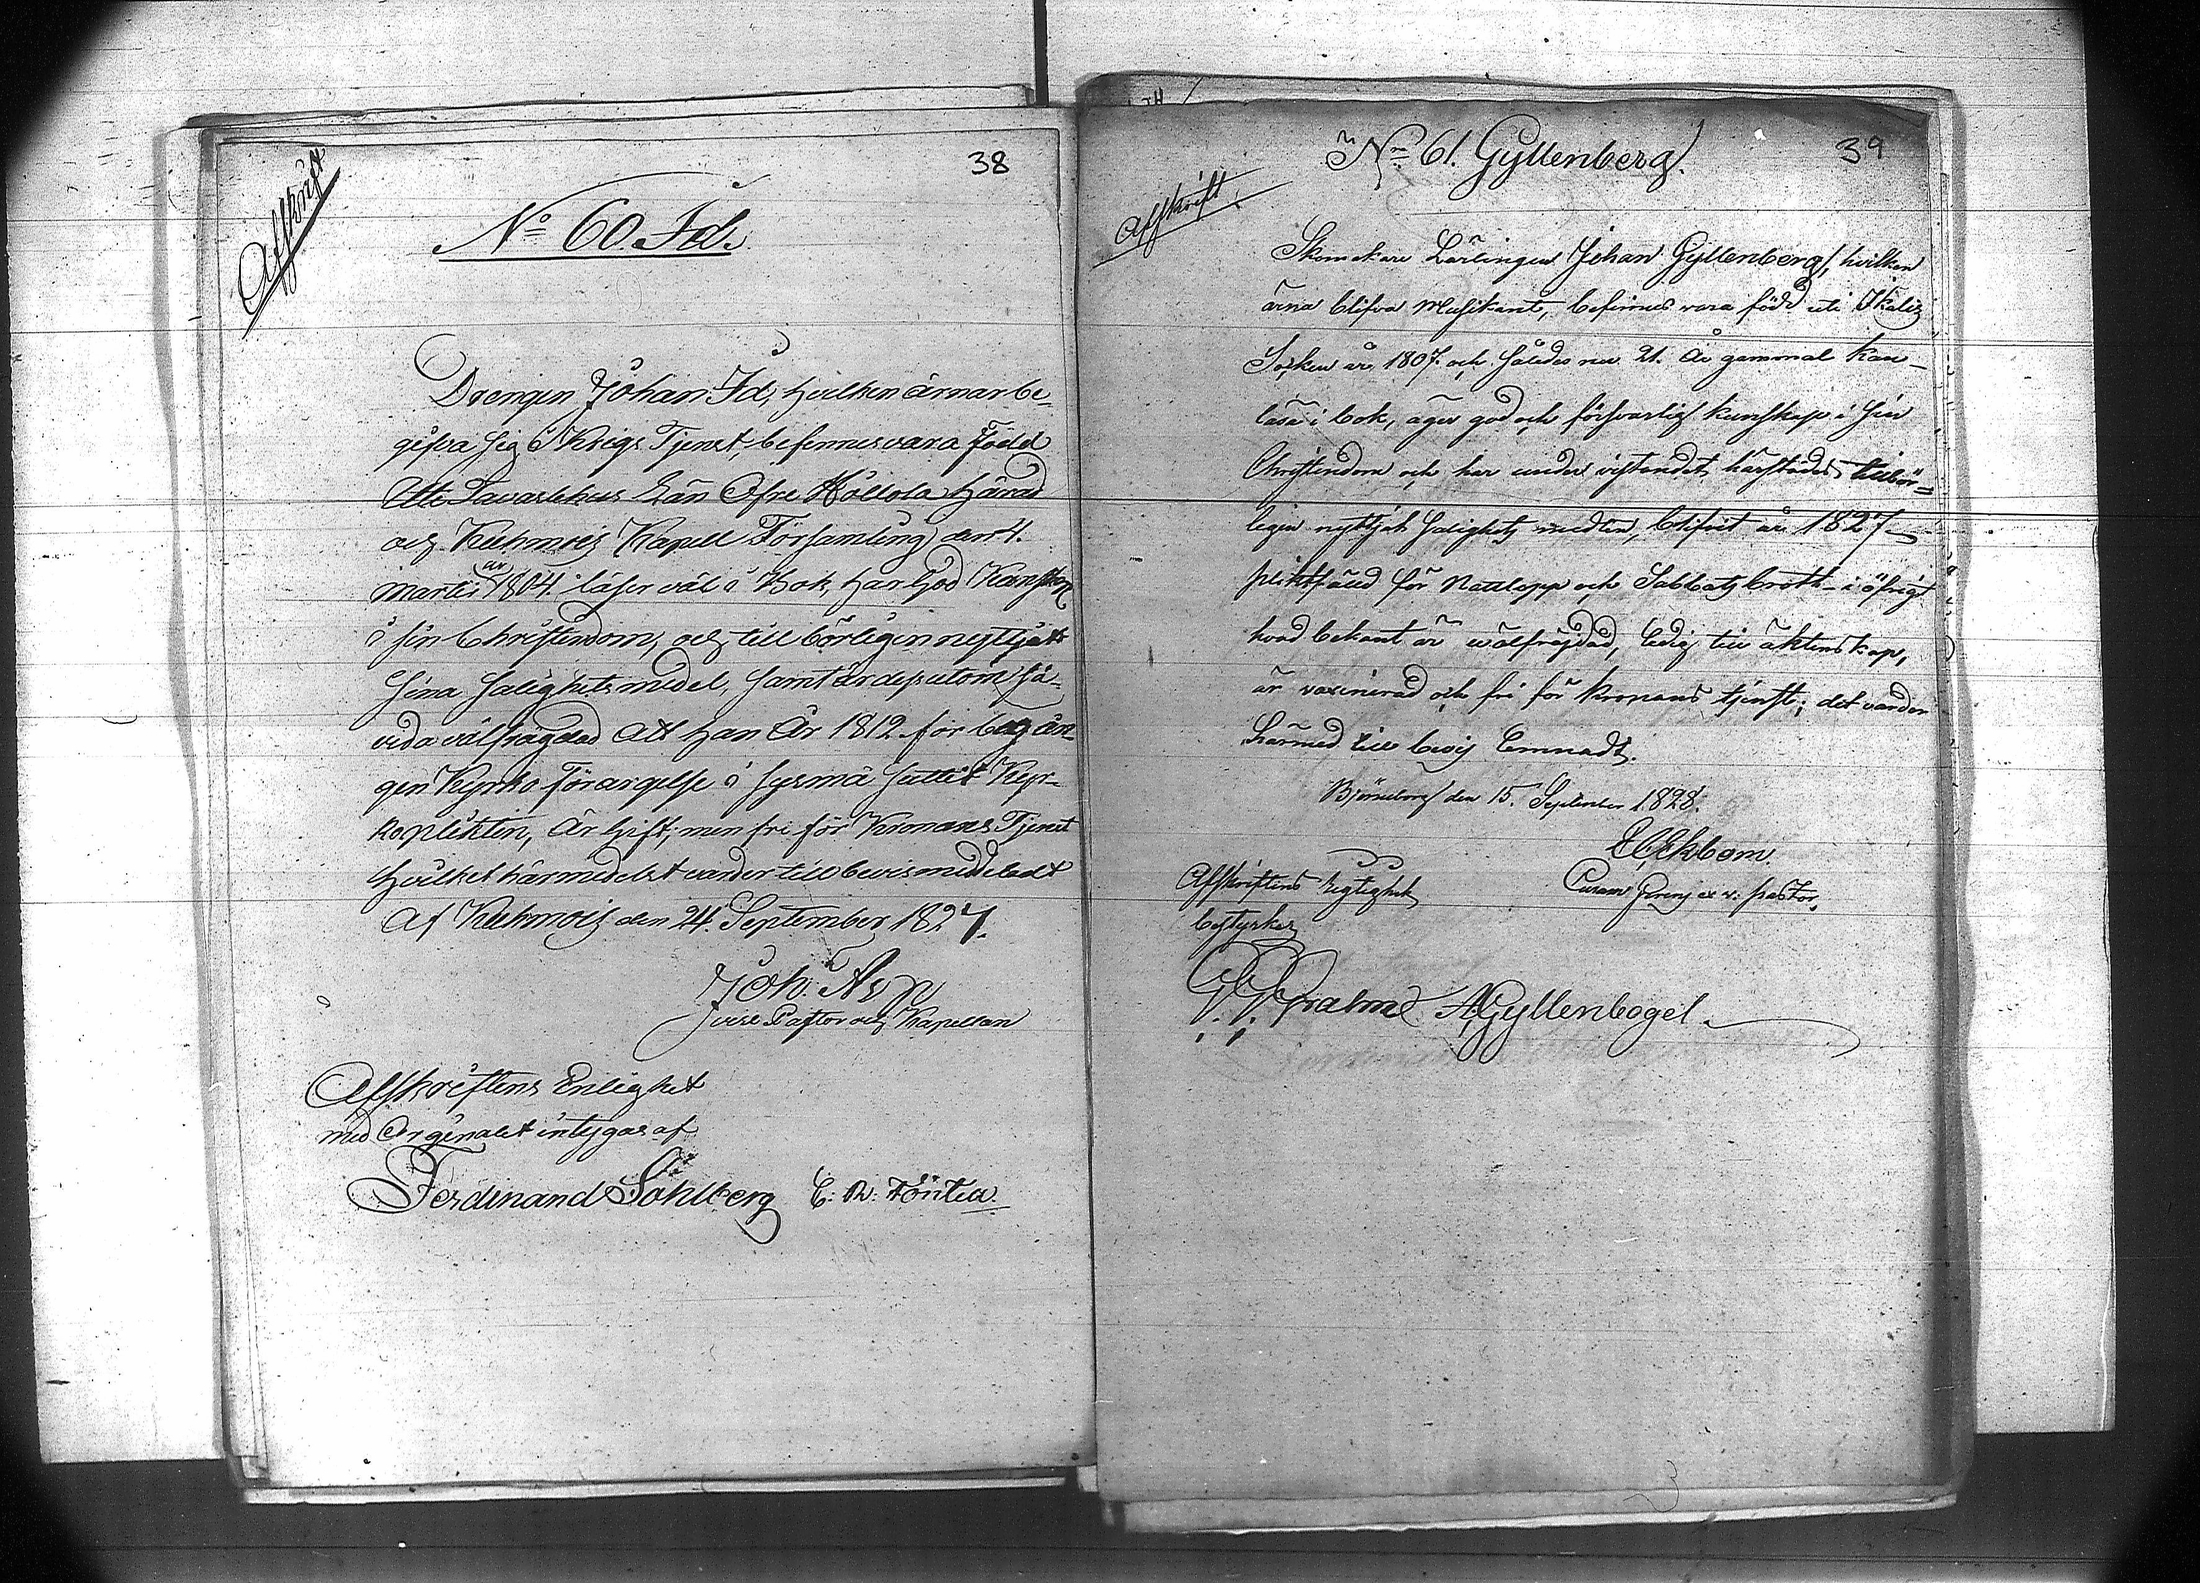 38
Afskrift
No 60. Id.
Drengen Johan Id, hvilken ärnar be-
gifva sig i Krigs Tjenst, befinnes vara född
uti Tavastehus Län Öfre Hollola Härad
och Kuhmois Kapell Församling den 4.
Martii år 1804. läser väl i Bok, har god Kunskap
i sin Christendom, och till börligen nyttjat
sina salighetsmedel, samt är desutom så-
vida välfrägdad att han År 1812 för begån-
gen Kyrko Förargelse i Sysmä suttit Kyr-
koplikten, är Gift, men fri för Kronans Tjenst
hvilket härmedelst varder till bevis meddeladt
Af Kuhmois den 24. September 1827.
Joh: Asp
Vice Pastor och Kapellan
Afskriftens Enlighet
med Orginalet intygas af
Ferdinand Söhlberg C: R:
39
No 61. Gyllenberg.
Afskrift
Skomakare Lärlingen Johan Gyllenberg, hvilken
ärna blifva Musikant, befinnes vara född uti Ikalis
Socken år 1807. och således nu 21. år gammal kan
läsa i bok, äger god och försvarlig kunskap i sin
Christendom och har under vistandet härstädes tillbör-
ligen nyttjat salighets medlen, blifvit år 1827
pliktfäld för Nattlopp och Sabbats brott - i öfrigt
hvad bekant är wälfrägdad, ledig till äktenskap,
är vaccinerad och fri för Kronans tjenst; det varder
härmed till bevis lemnadt.
Björneborg den 15. September 1828.
Ekbom
v: Pastor.
Afskriftens rigtighet
bestyrker
A Gyllenbögel